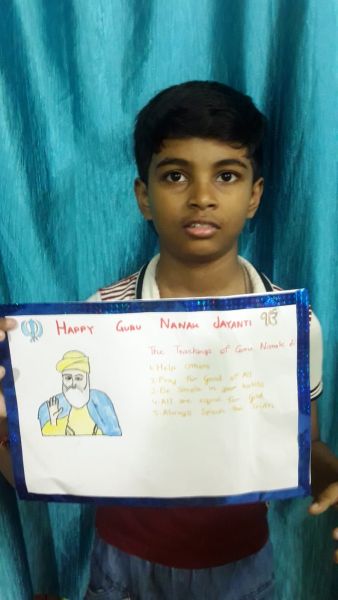 HAPPY GURU NANAK JAYANTI ੴ
The Teachings of Guru Nanak
1. Help Others
2. Pray for Good of All
3. Be Simple in your habits
4. All are equal for God
5. Always Speak the Truth